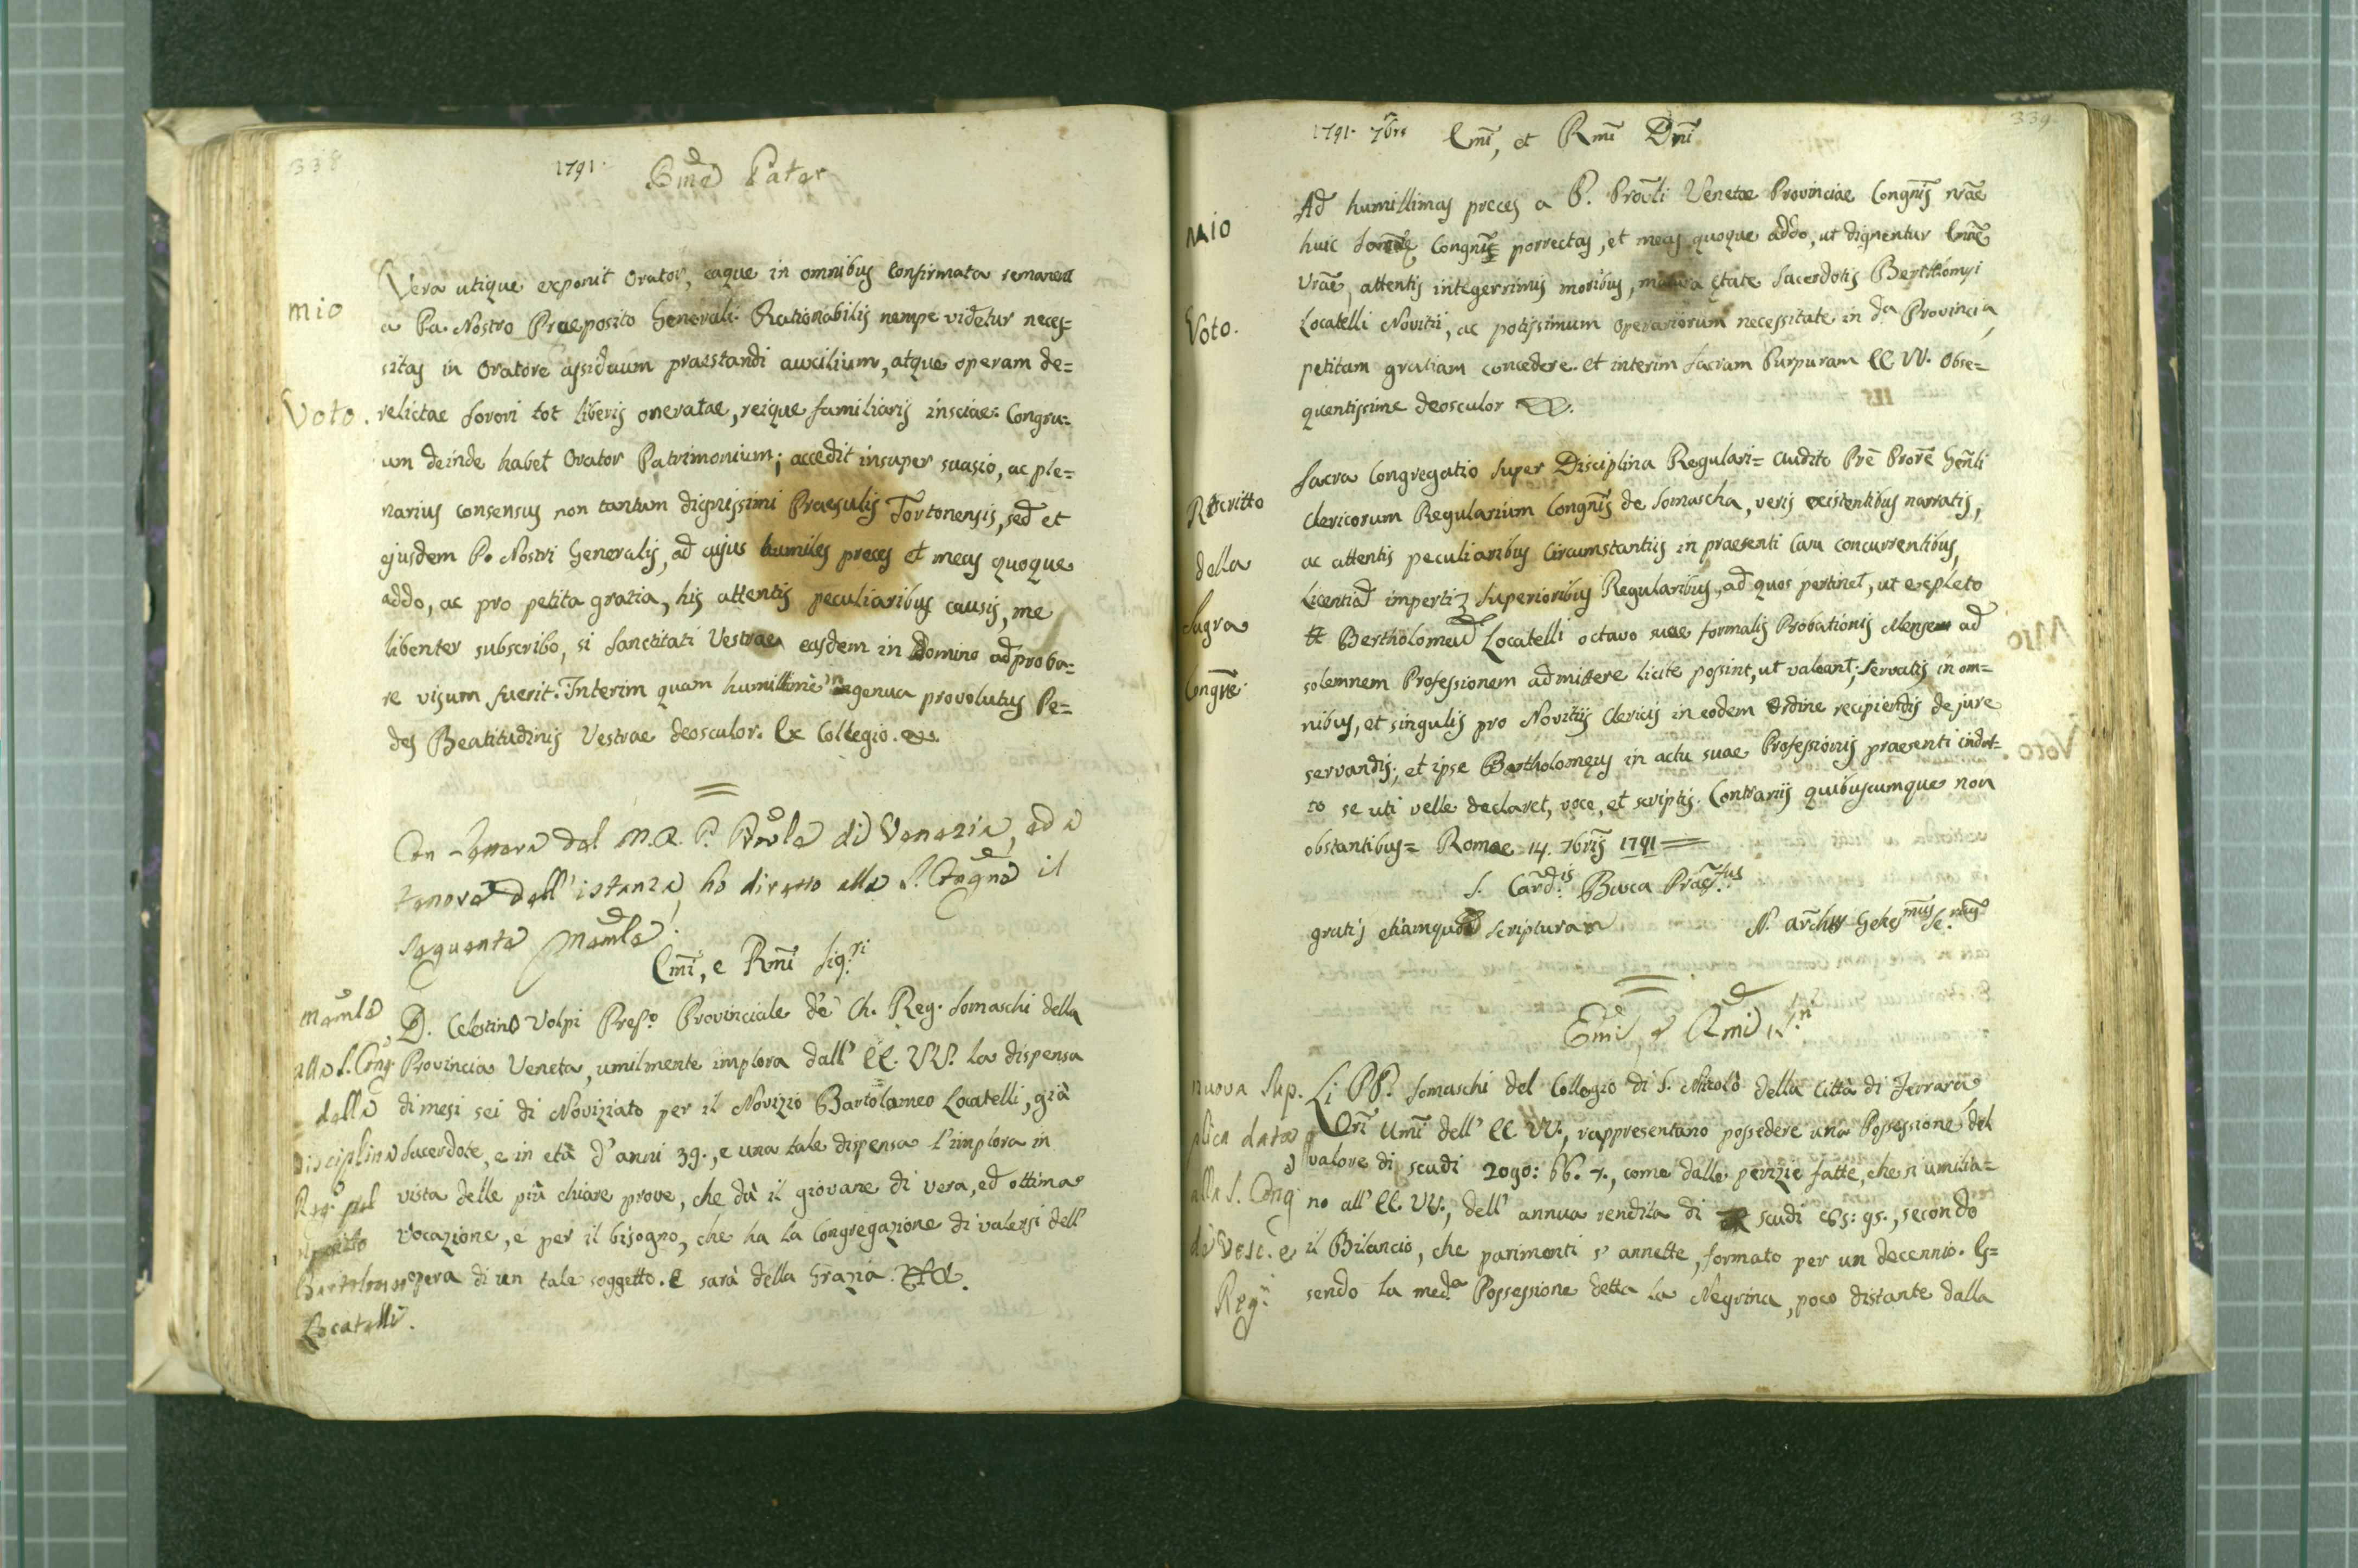 338
1791.
Bme Pater
mio
Voto.
Vera utique exponit Orator, eaque in omnibus Confirmata remanent
a Pa. Nostro Praeposito Generali. Rationabilis nempe videtur neces=
sitas in Oratore assiduum praestandi auxilium, atque operam de=
relictae Sorori tot liberis oneratae, reique familiaris insciae: Congru=
um deinde habet Orator Patrimonium; accedit insuper suasio, ac ple=
narius consensus non tantum dignissimi Praesulis Tortonensis, sed et
ejusdem P. Nostri Generalis, ad cujus humiles preces et meas quoque
addo, ac pro petita gratia, his attentis peculiaribus causis, me
libenter subscribo, si Sanctitati Vestrae easdem in Domino adproba=
re visum fuerit. Interim quam humillime ingenua provolutus Pe=
des Beatitudinis Vestrae deosculor. Ex Collegio.
Con Lettera del M. R. P. Prővle di Venezia, ed a
tenore dell' istanza, ho diretto alla S. Congne il
seguente Memle:
Emi, e Rmi Sig.ri
Memle
alla S. Cong
della
Disciplina
Reg. pel
Bartolomeo
Locatelli.
D. Celestino Volpi Prep.o Provinciale de' Ch. Reg. Somaschi della
Provincia Veneta, umilmente implora dall' EE. VV. la dispensa
di mesi sei di Noviziato per il Novizio Bartolameo Locatelli, già
Sacerdote, e in età d' anni 39., e una tale dispensa l' implora in
vista delle più chiare prove, che dà il giovane di vera, ed ottima
vocazione, e per il bisogno, che ha la Congregazione di valersi dell'
opera di un tale soggetto. E sarà della Grazia.
339
1791. 7bre
Emi, et Rmi Dni
Mio
Voto.
Ad humillimas preces a P. Prővli Venetae Provinciae Congnis nrae
huic Congni porrectas, et meas quoque addo, ut dignentur Emae
Vrae, attentis integerrimis moribus, matura etate Sacerdotis Bertholomei
Locatelli Novitii, ac potissimum operariorum necessitate in da Provincia,
petitam gratiam concedere. et interim Sacram Purpuram EE. VV. Obse=
quentissime deosculor
Rescritto
della
Sagra
Congne.
Sacra Congregatio super Disciplina Regulari= Audito Pre Prore Genli
Clericorum Regularium Congnis de Somascha, veris existentibus narratis,
ac attentis peculiaribus Circumstantiis in praesenti Casu concurrentibus,
Licentiad imperti Superioribus Regularibus, ad quos pertinet, ut expleto
Bertholomeu Locatelli octavo suae formalis Probationis Mense ad
solemnem Professionem admittere licite possint, ut valeant; Servatis in om=
nibus, et singulis pro Novitiis Clericis in eodem Ordine recipiendis de jure
servandis; et ipse Bartholomeus in actu suae Professionis praesenti indul=
to se uti velle declaret, voce, et scriptis. Contrariis quibuscumque non
obstantibus= Romae 14. 7bris 1791
S. Card.is Praef.tus
gratis etiamquoad scripturam
Emi, e Rmi S.ri
nuova Sup.
plica data
alla S. Cong
di Vesc. e
Reg.i
Li PP. Somaschi del Collegio di S. Nicolò della Città di Ferrara
Ori Umi dell' EE VV., rappresentano possedere una Possessione del
valore di scudi 2090: 66. 7., come dalle perizie fatte, che si umilia=
no all' EE. VV., dell' annua rendita di scudi 65: 95., secondo
il Bilancio, che parimenti s' annette, formato per un decennio. Es=
sendo la med.a Possessione detta la Negrina, poco distante dalla